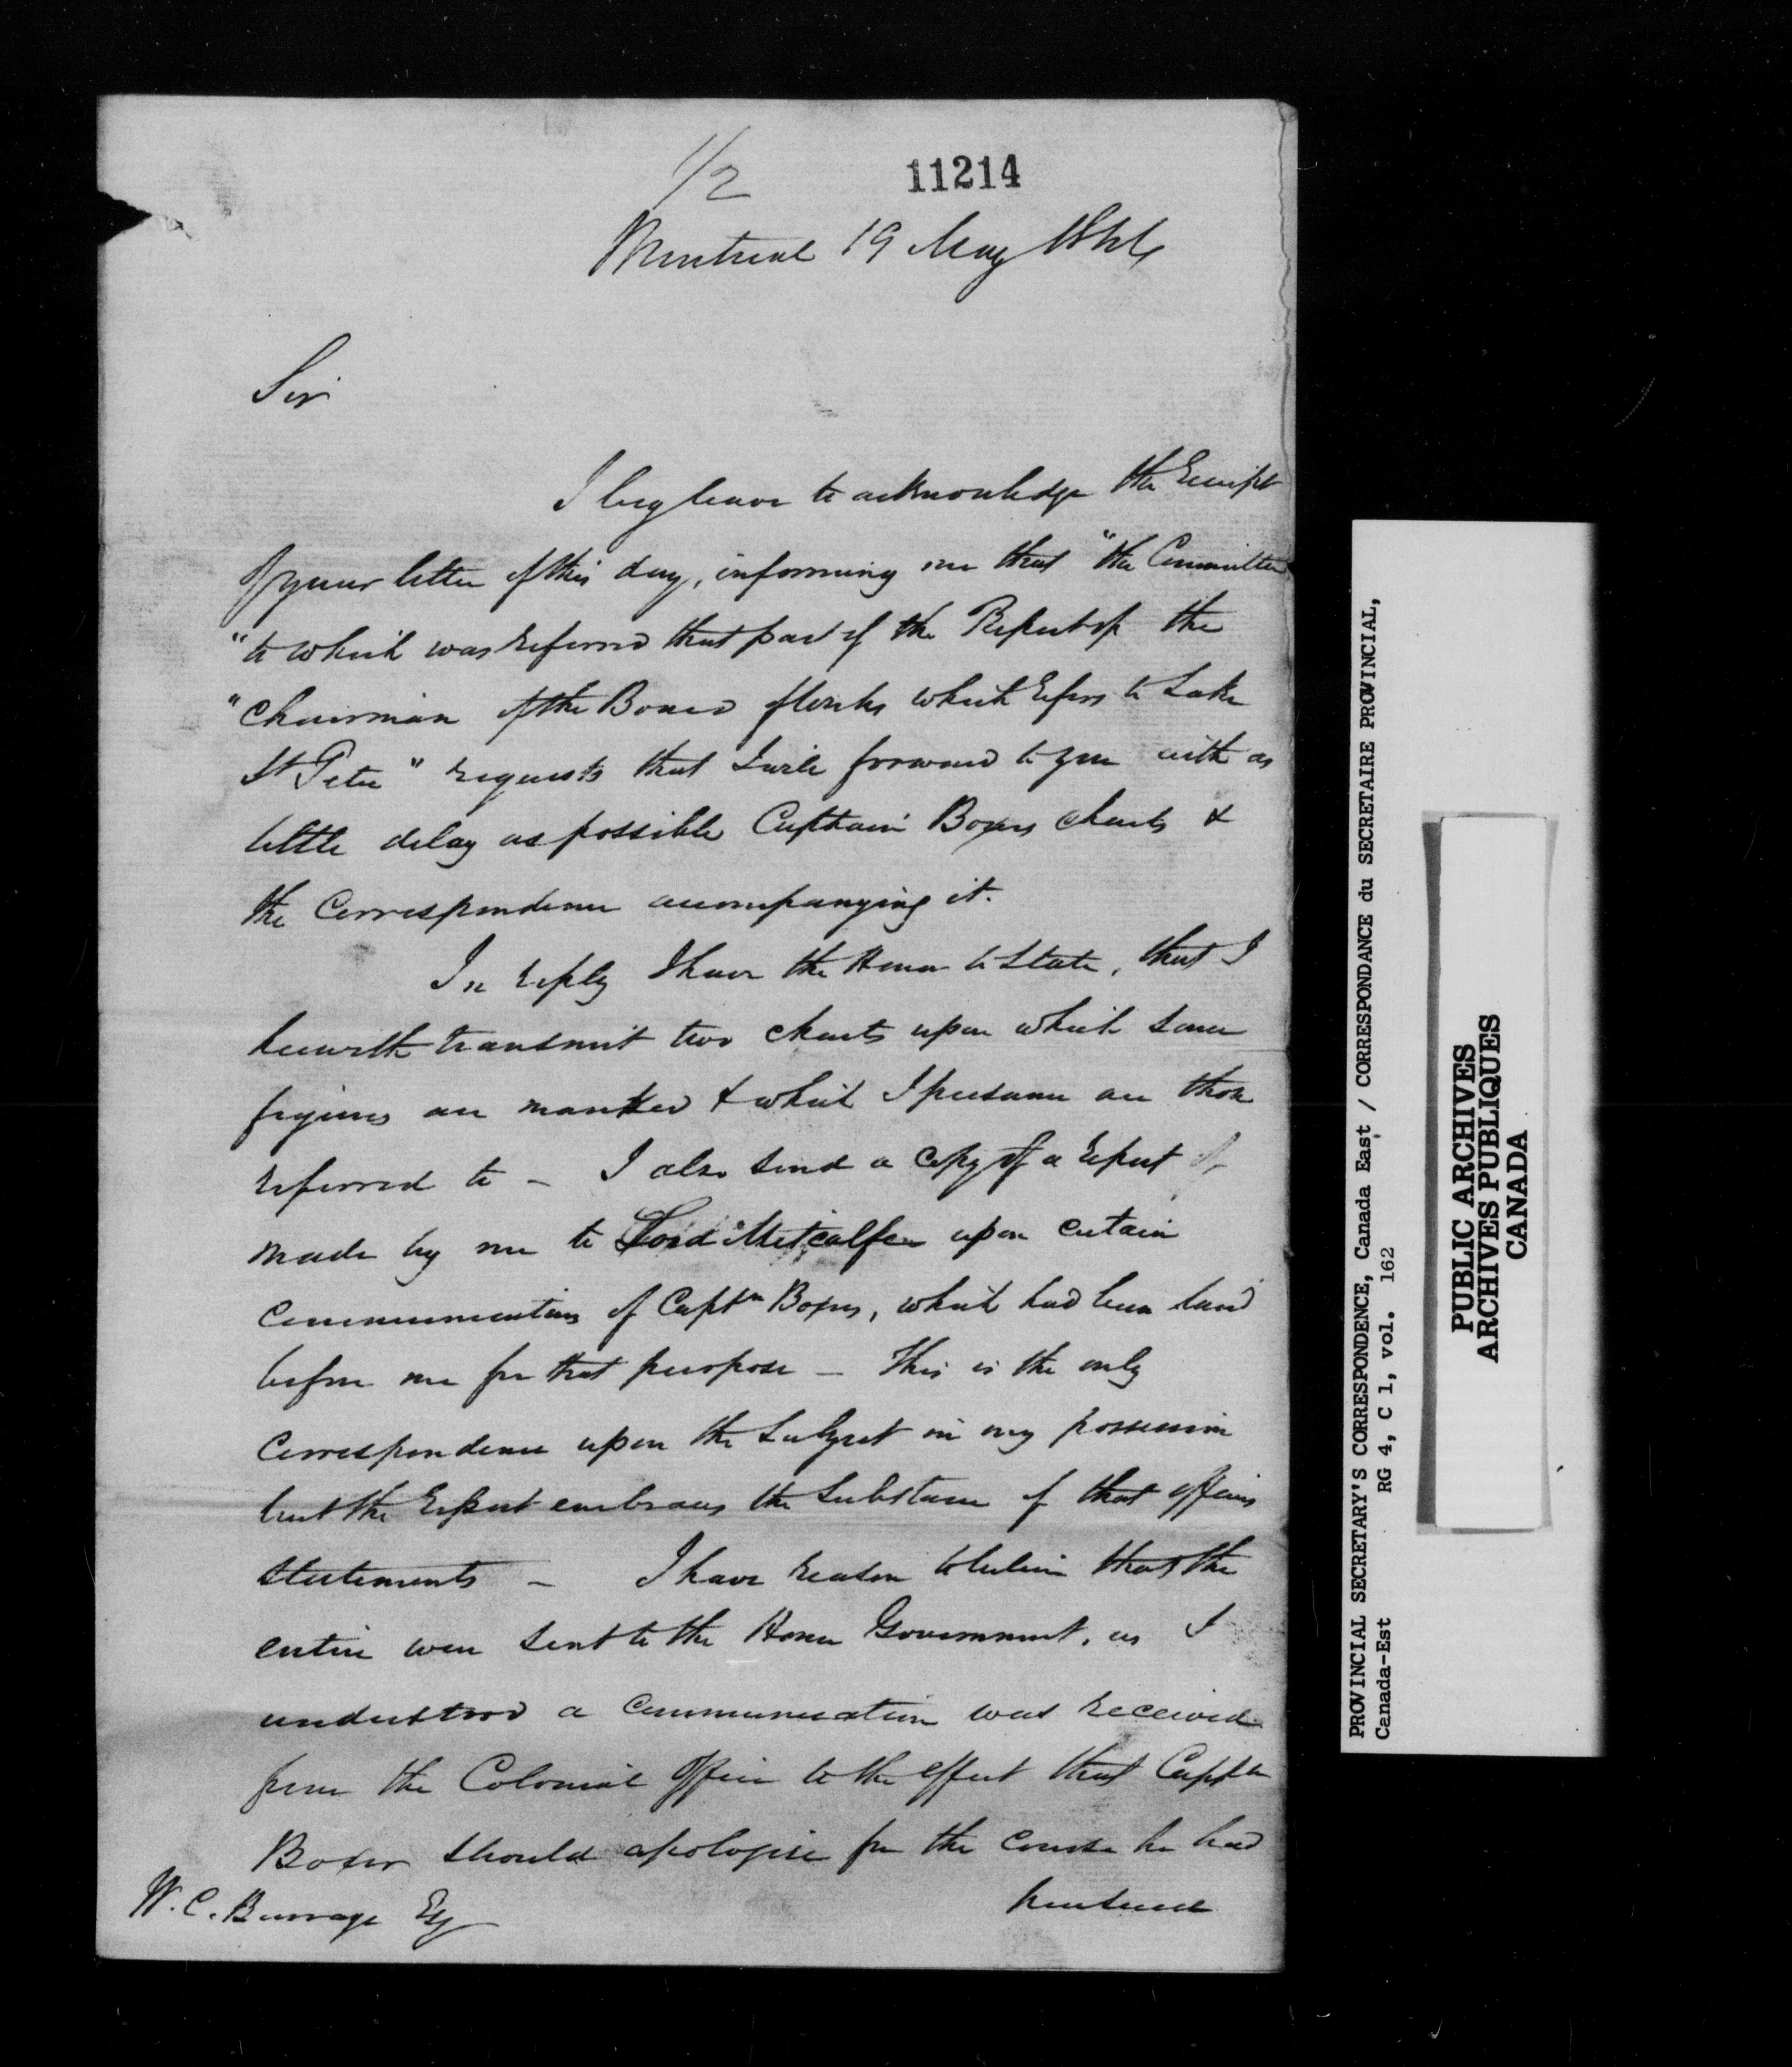 1/2
11214
Montreal 19 May 1846
Sir
I beg leave to acknowledge the Receipt
of your letter of this day, informing me that "the Committee
"to which was referred that part of the Report of the
"Chairman of the Board of Works which refers to Lake
St Peter" requests that I will forward to you with as
little delay as possible Captain Boxers charts &
the Correspondence accompanying it.
In reply I have the Honor to State, that I
herewith transmit two charts upon which some
figures are marked & which I presume are those
referred to – I also send a copy of a Report
made by me to Lord Metcalfe upon certain
Communications of Captn Boxers, which had been laid
before me for that purpose – This is the only
Correspondence upon the Subject in my possession
but the Report embraces the Substance of that officers
Statements – I have reason to believe that the
entire were sent to the Home Government, as I
understood a Communication was received
from the Colonial Office to the effect that Captn
Boxer should apologise for the course he had
pursued
W. C. Burrage Esq
PROVINCIAL SECRETARY'S CORRESPONDENCE, Canada East / CORRESPONDANCE du SECRETAIRE PROVINCIAL,
Canada-Est RG 4, C 1, vol. 162
PUBLIC ARCHIVES
ARCHIVES PUBLIQUES
CANADA